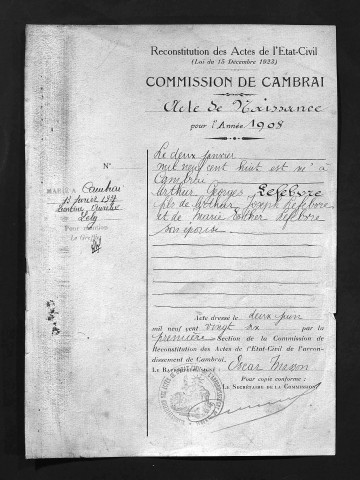 Reconstitution des Actes de l'Etat-Civil
(Loi du 15 Décembre 1923)
COMMISSION DE CAMBRAI
Acte de Naissance
pour l'Année 1908
N°
Le deux janvier
mil neuf cent huit est né à
Cambrai
Arthur Georges Lefebvre
fils de Arthur Joseph Lefebvre
et de Marie Lefebvre
son épouse
MARIÉ A Cambrai
Pour mention
Le Greffier
Acte dressé le deux juin
mil neuf cent vingt six par la
première Section de la Commission de
Reconstitution des Actes de l'Etat-Civil de l'arron-
dissement de Cambrai.
LE Oscar
Pour copie conforme :
LE SECRÉTAIRE DE LA COMMISSION